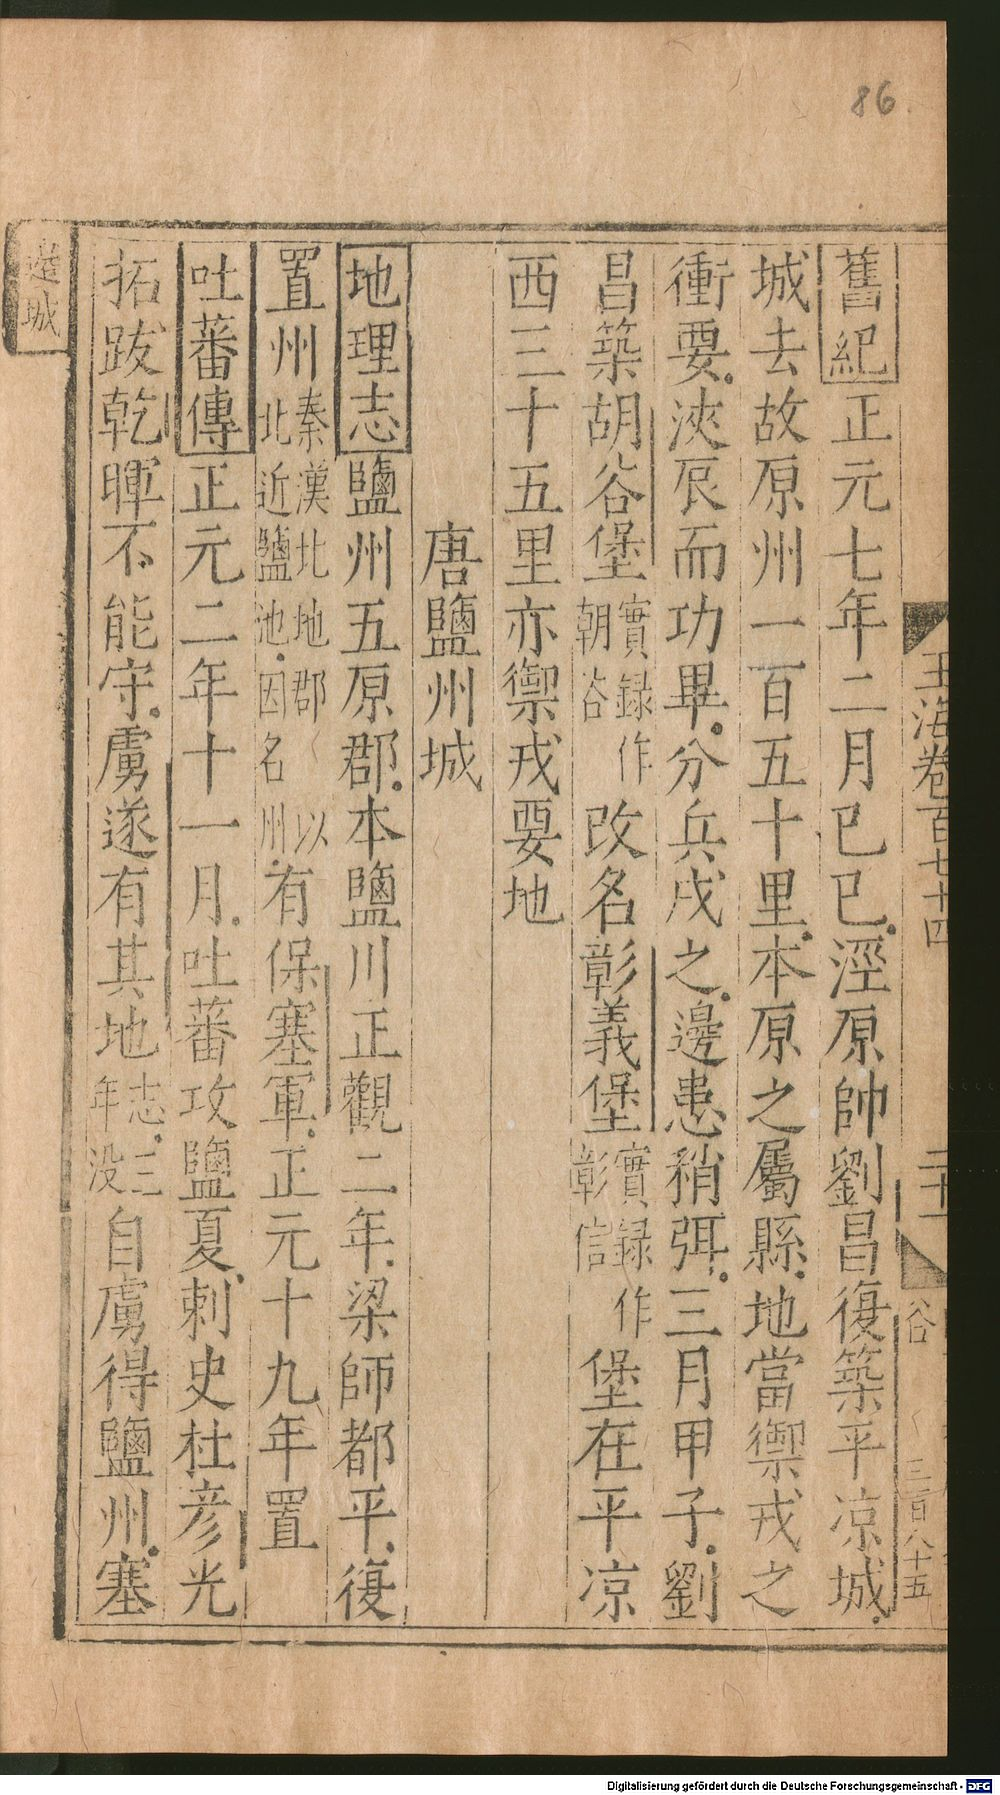 86
玉海卷百七十四
二十一
谷
三百八十五
舊紀正元七年二月己巳涇原帥劉昌復築平凉城
城去故原州一百五十里本原之屬縣地當禦戎之
衝要浹辰而功畢分兵戍之邊患稍弭三月甲子劉
昌築胡谷堡實録作朝谷改名彰義堡實録作彰信堡在平凉
西三十五里亦禦戎要地
唐鹽州城
地理志鹽州五原郡本鹽川正觀二年梁師都平復
置州秦漢北地郡以北近鹽池因名州有保塞軍正元十九年置
吐蕃傳正元二年十一月吐蕃攻鹽夏刺史杜彦光
拓跋乾暉不能守虜遂有其地志三年没自虜得鹽州塞
邊城
Digitalisierung gefördert durch die Deutsche Forschungsgemeinschaft - DFG